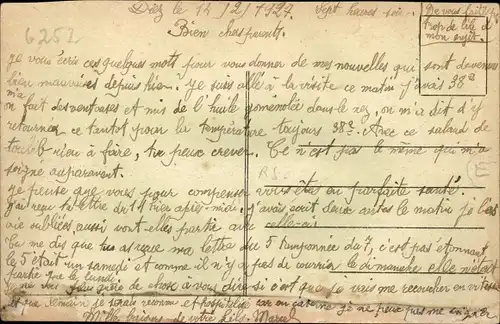 6252
Daz le 14/2/1927. Sept heures soir.
De vous faites pas
trop de bile à
mon sujet.
Bien chers parents.
Je vous écris ces quelques mots pour vous donner de mes nouvelles qui sont devenues
bien mauvaises depuis hier. Je suis allé à la visite ce matin j'avais 38°
on m'a fait des ventouses et mis de l'huile goménolée dans le nez, on m'a dit d'y
retourner ce tantôt pour la température toujours 38°. Avec ce salaud de
toubib rien à faire, tu peux crever. Ce n'est pas le même qui m'a
soigné auparavant.
Je pense que vous pour compenser vous êtes en parfaite santé.
J'ai reçu ta lettre du 11 hier après-midi. J'avais écrit deux cartes le matin je les
ai oubliées aussi sont-elles partie avec celle-ci.
Tu me dis que tu as reçu ma lettre du 5 tamponnée du 7, c'est pas étonnant
le 5 était un samedi et comme il n'y a pas de courrier le dimanche elle n'était
partie que le lundi.
Je ne vois plus guère de chose à vous dire si c'est que je vais me recoucher en vitesse
et que demain je serais reconnu et hospitalisé car en cas je ne peux pas me
Mille baisers de votre fils Marcel